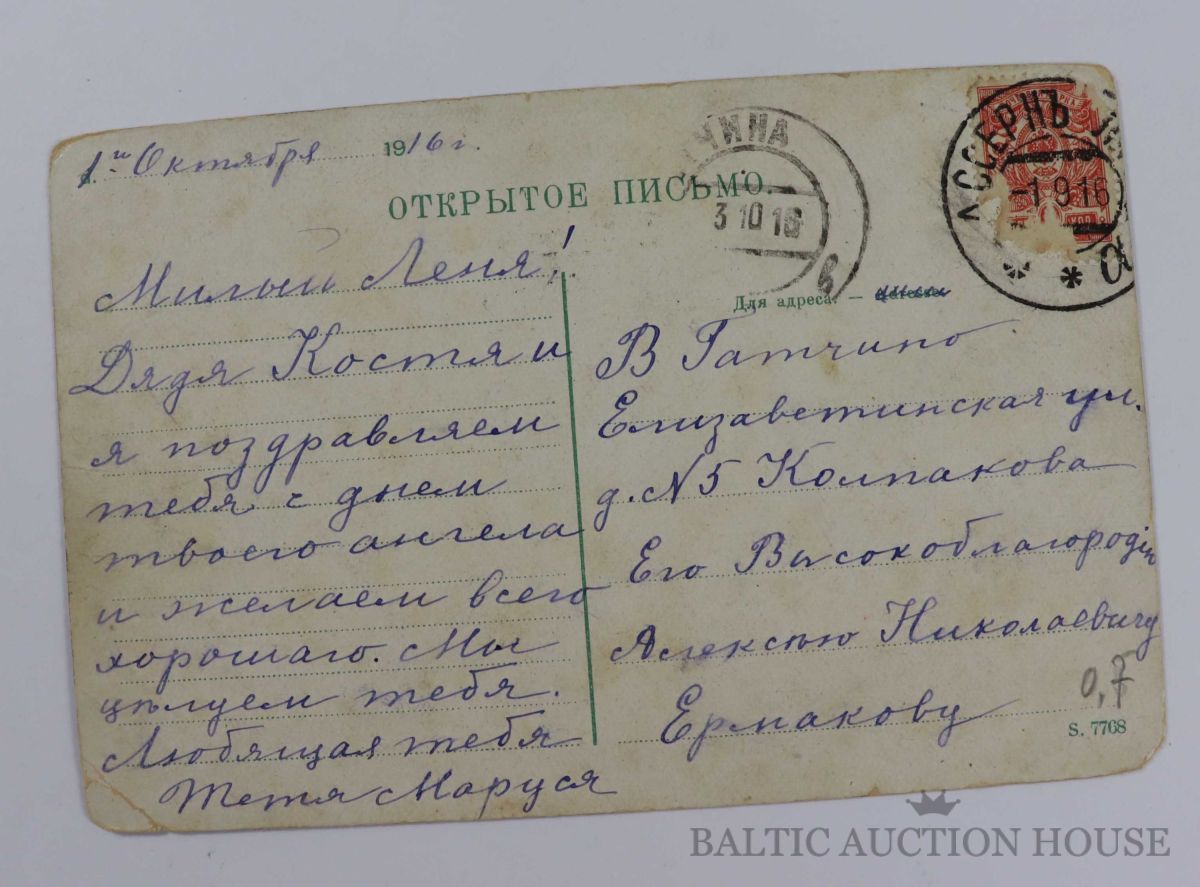 1го Октября 1916 г.
ОТКРЫТОЕ ПИСЬМО.
Милый Леня!
Дядя Костя и
я поздравляем
тебя с днем
твоего ангела
и желаем всего
хорошаго. Мы
цѣлуем тебя.
Любящая тебя
Тетя Маруся
ЧИНА
3 10 16
ЛССЕРНЪ
-1 9 16
Для адреса. —
В Гатчино
Елизаветинская ул.
д. №5 Колпакова
Его Высокоблагородію
Алексѣю Николаевичу
Ермакову
0,7
S. 7768
BALTIC AUCTION HOUSE